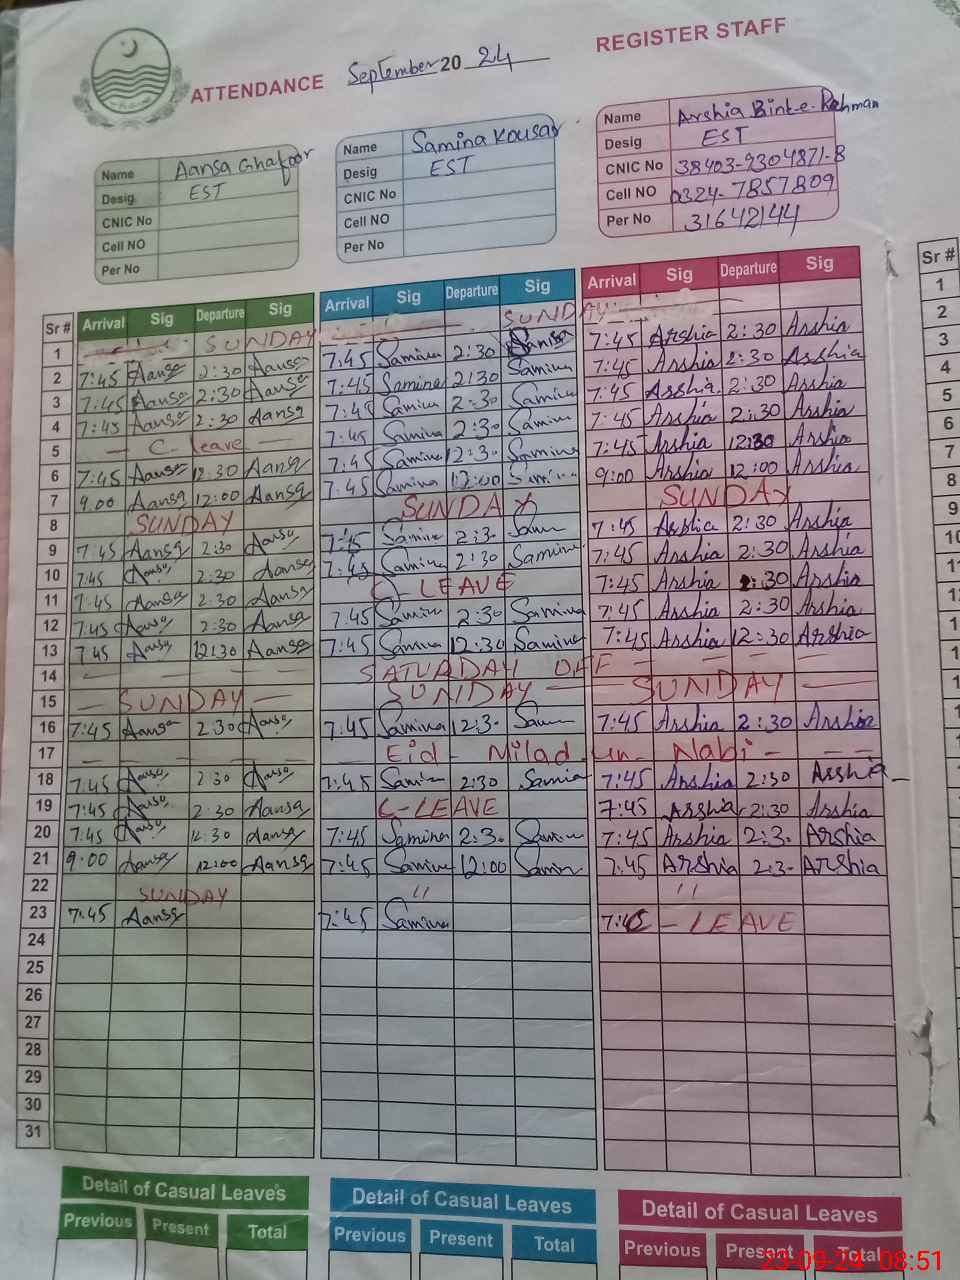 ATTENDANCE September 2024 REGISTER STAFF
Name Aansa Ghafoor
Desig. EST
CNIC No
Cell NO
Per No
Name Samina Kousar
Desig EST
CNIC No
Cell NO
Per No
Name Arshia Binte-Rehman
Desig EST
CNIC No 38403-9304871-8
Cell NO 0324-7857809
Per No 31642144
Sr # Arrival Sig Departure Sig Arrival Sig Departure Sig Arrival Sig Departure Sig Sr #
1 SUNDAY SUNDAY
2 7:45 Aansa 2:30 Aansa 7:45 Samina 2:30 Samina 7:45 Arshia 2:30 Arshia
3 7:45 Aansa 2:30 Aansa 7:45 Samina 2:30 Samina 7:45 Arshia 2:30 Arshia
4 7:45 Aansa 2:30 Aansa 7:45 Samina 2:30 Samina 7:45 Arshia 2:30 Arshia
5 - C. leave - 7:45 Samina 2:30 Samina 7:45 Arshia 2:30 Arshia
6 7:45 Aansa 12:30 Aansa 7:45 Samina 12:30 Samina 7:45 Arshia 12:30 Arshia
7 9.00 Aansa 12:00 Aansa 7:45 Samina 12:00 Samina 9:00 Arshia 12:00 Arshia
8 SUNDAY SUNDAY SUNDAY
9 7:45 Aansa 2:30 Aansa 7:45 Samina 2:3. Sam 7:45 Arshia 2:30 Arshia
10 7:45 Aansa 2:30 Aansa 7:45 Samina 2:30 Samina 7:45 Arshia 2:30 Arshia
11 7:45 Aansa 2:30 Aansa C-LEAVE 7:45 Arshia 2:30 Arshia
12 7:45 Aansa 2:30 Aansa 7:45 Samina 2:30 Samina 7:45 Arshia 2:30 Arshia
13 7:45 Aansa 12:30 Aansa 7:45 Samina 12:30 Samina 7:45 Arshia 12:30 Arshia
14 SATURDAY OFF
15 - SUNDAY - SUNDAY - SUNDAY -
16 7:45 Aansa 2:30 Aansa 7:45 Samina 2:3. Sam 7:45 Arshia 2:30 Arshia
17 Eid - Milad-un-Nabi -
18 7:45 Aansa 2:30 Aansa 7:45 Samina 2:30 Samina 7:45 Arshia 2:30 Arshia
19 7:45 Aansa 2:30 Aansa C-LEAVE 7:45 Arshia 2:30 Arshia
20 7:45 Aansa 12:30 Aansa 7:45 Samina 2:3. Samina 7:45 Arshia 2:3. Arshia
21 9:00 Aansa 12:00 Aansa 7:45 Samina 12:00 Samina 7:45 Arshia 2:3- Arshia
22 SUNDAY " "
23 7:45 Aansa 7:45 Samina 7:45 - LEAVE
24
25
26
27
28
29
30
31
Detail of Casual Leaves Detail of Casual Leaves Detail of Casual Leaves
Previous Present Total Previous Present Total Previous Present Total
23-09-24 08:51